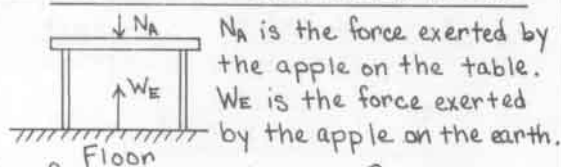 N_A N_A is the force exerted by
the apple on the table.
W_E W_E is the force exerted
by the apple on the earth.
Floon